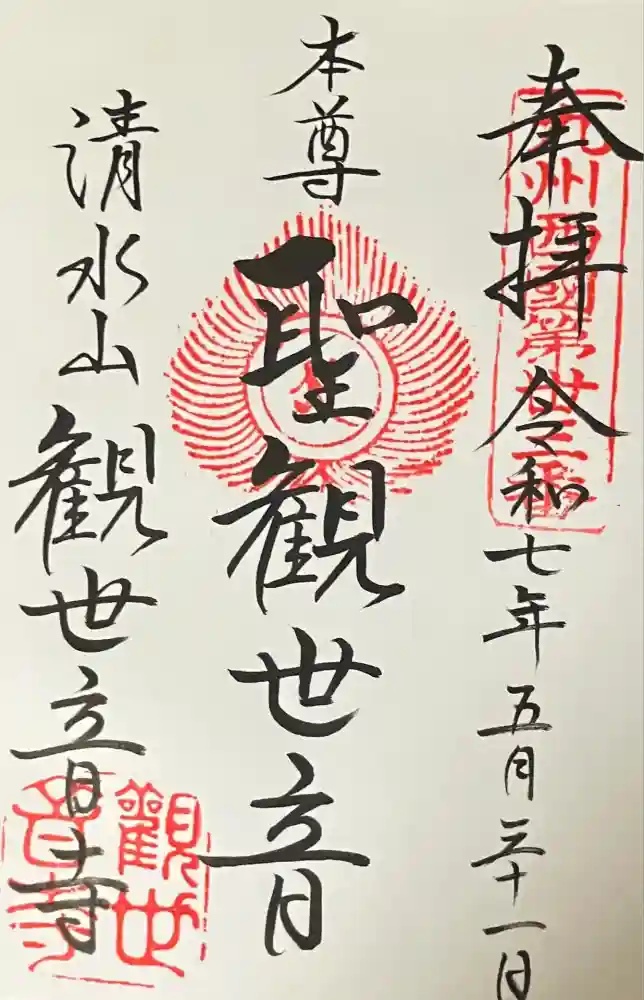 奉拝
令和七年五月三十一日
九州西國第卅三番
本尊
聖観世音
清水山
観世音寺
觀世音寺